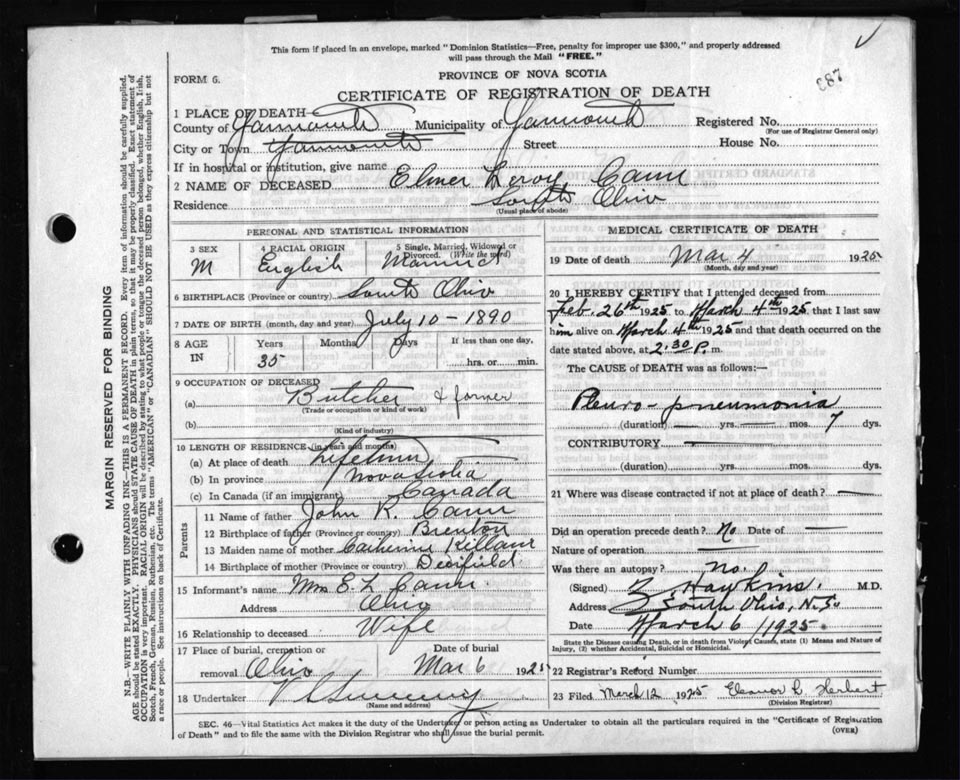 This form if placed in an envelope, marked "Dominion Statistics—Free, penalty for improper use $300," and properly addressed
will pass through the Mail "FREE."
FORM 6.
PROVINCE OF NOVA SCOTIA
CERTIFICATE OF REGISTRATION OF DEATH
1 PLACE OF DEATH
County of Yarmouth Municipality of Yarmouth Registered No.
(For use of Registrar General only)
City or Town Yarmouth Street House No.
If in hospital or institution, give name
2 NAME OF DECEASED Elmer Leroy Cann
Residence South Ohio
(Usual place of abode)
PERSONAL AND STATISTICAL INFORMATION
3 SEX 4 RACIAL ORIGIN 5 Single, Married, Widowed or Divorced. (Write the word)
M English Married
6 BIRTHPLACE (Province or country) South Ohio
7 DATE OF BIRTH (month, day and year) July 10 - 1890
8 AGE IN Years Months Days If less than one day,
35 hrs. or min.
9 OCCUPATION OF DECEASED
(a) Butcher & farmer
(Trade or occupation or kind of work)
(b)
(Kind of industry)
10 LENGTH OF RESIDENCE (in years and months)
(a) At place of death Lifetime
(b) In province Nova Scotia
(c) In Canada (if an immigrant) Canada
Parents
11 Name of father John K. Cann
12 Birthplace of father (Province or country) Brenton
13 Maiden name of mother Catherine Killam
14 Birthplace of mother (Province or country) Deerfield
15 Informant's name Mrs E L Cann
Address Ohio
16 Relationship to deceased Wife
17 Place of burial, cremation or Date of burial
removal Ohio Mar 6 1925
18 Undertaker V Sweeney
(Name and address)
MEDICAL CERTIFICATE OF DEATH
19 Date of death Mar 4 1925
(Month, day and year)
20 I HEREBY CERTIFY that I attended deceased from
Feb. 26th 1925 to March 4th 1925, that I last saw
him alive on March 4th 1925 and that death occurred on
date stated above, at 2.30 P. m.
The CAUSE of DEATH was as follows:—
Pleuro-pneumonia
(duration) — yrs. — mos. 7 dys.
CONTRIBUTORY —
(duration) yrs. mos. dys.
21 Where was disease contracted if not at place of death? —
Did an operation precede death? No Date of —
Nature of operation —
Was there an autopsy? no.
(Signed) Z Hawkins. M.D.
Address South Ohio, N.S.
Date March 6 1925
State the Disease causing Death, or in death from Violent Causes, state (1) Means and Nature of
Injury, (2) whether Accidental, Suicidal or Homicidal.
22 Registrar's Record Number
23 Filed March 12 1925 Eleanor L. Herbert
(Division Registrar)
SEC. 46—Vital Statistics Act makes it the duty of the Undertaker or person acting as Undertaker to obtain all the particulars required in the "Certificate of Registration
of Death" and to file the same with the Division Registrar who shall issue the burial permit.
(OVER)
MARGIN RESERVED FOR BINDING
N.B.—WRITE PLAINLY WITH UNFADING INK—THIS IS A PERMANENT RECORD. Every item of information should be carefully supplied.
AGE should be stated EXACTLY. PHYSICIANS should STATE CAUSE OF DEATH in plain terms, so that it may be properly classified. Exact statement of
OCCUPATION is very important. RACIAL ORIGIN will be described by stating to what people or tongue the deceased person belonged, whether English, Irish,
Scotch, French, German, Russian, Ruthenian, etc. The terms "AMERICAN" or "CANADIAN" SHOULD NOT BE USED as they express citizenship but not
a race or people. See instructions on back of Certificate.